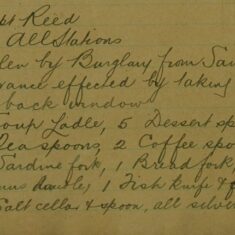 pt Reed
All Stations
len by Burglary from Sa
rance effected by taking
back window
Soup Ladle, 5 Dessert sp
Tea spoons, 2 Coffee spo
Sardine fork, 1 Bread fork,
1 Fish knife &
Salt cellar & spoon, all silver